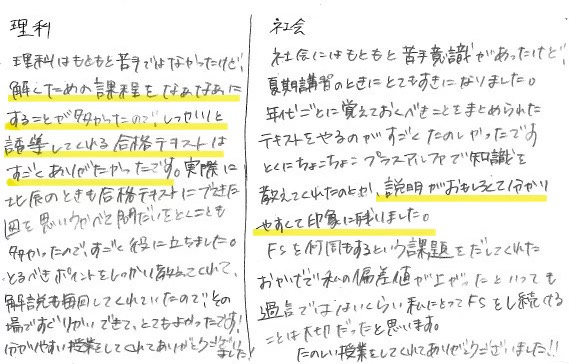 理科
理科はもともと苦手ではなかったけど、
解くための課程をなあなあに
することが多かったので、しっかりと
誘導してくれる合格テキストは
すごくありがたかったです。実際に
北辰のときも合格テキストにでてきた
図を思いうかべて問だいをとくことも
多かったので、すごく役に立ちました。
とるべきポイントをしっかり教えてくれて、
解説も毎回してくれていたのでその
場ですぐりかいできて、とてもよかったです!
分かりやすい授業をしてくれてありがとうございました!
社会
社会にはもともと苦手意識があったけど、
夏期講習のときにとてもすきになりました。
年代ごとに覚えておくべきことをまとめられた
テキストをやるのがすごくたのしかったです
とくにちょこちょこプラスアルファで知識を
教えてくれたのとか、説明がおもしろくて分かり
やすくて印象に残りました。
FSを何周もするという課題をだしてくれた
おかげで私の偏差値が上がったといっても
過言ではないくらい私にとってFSをし続ける
ことは大切だったと思います。
たのしい授業をしてくれてありがとうございました!!